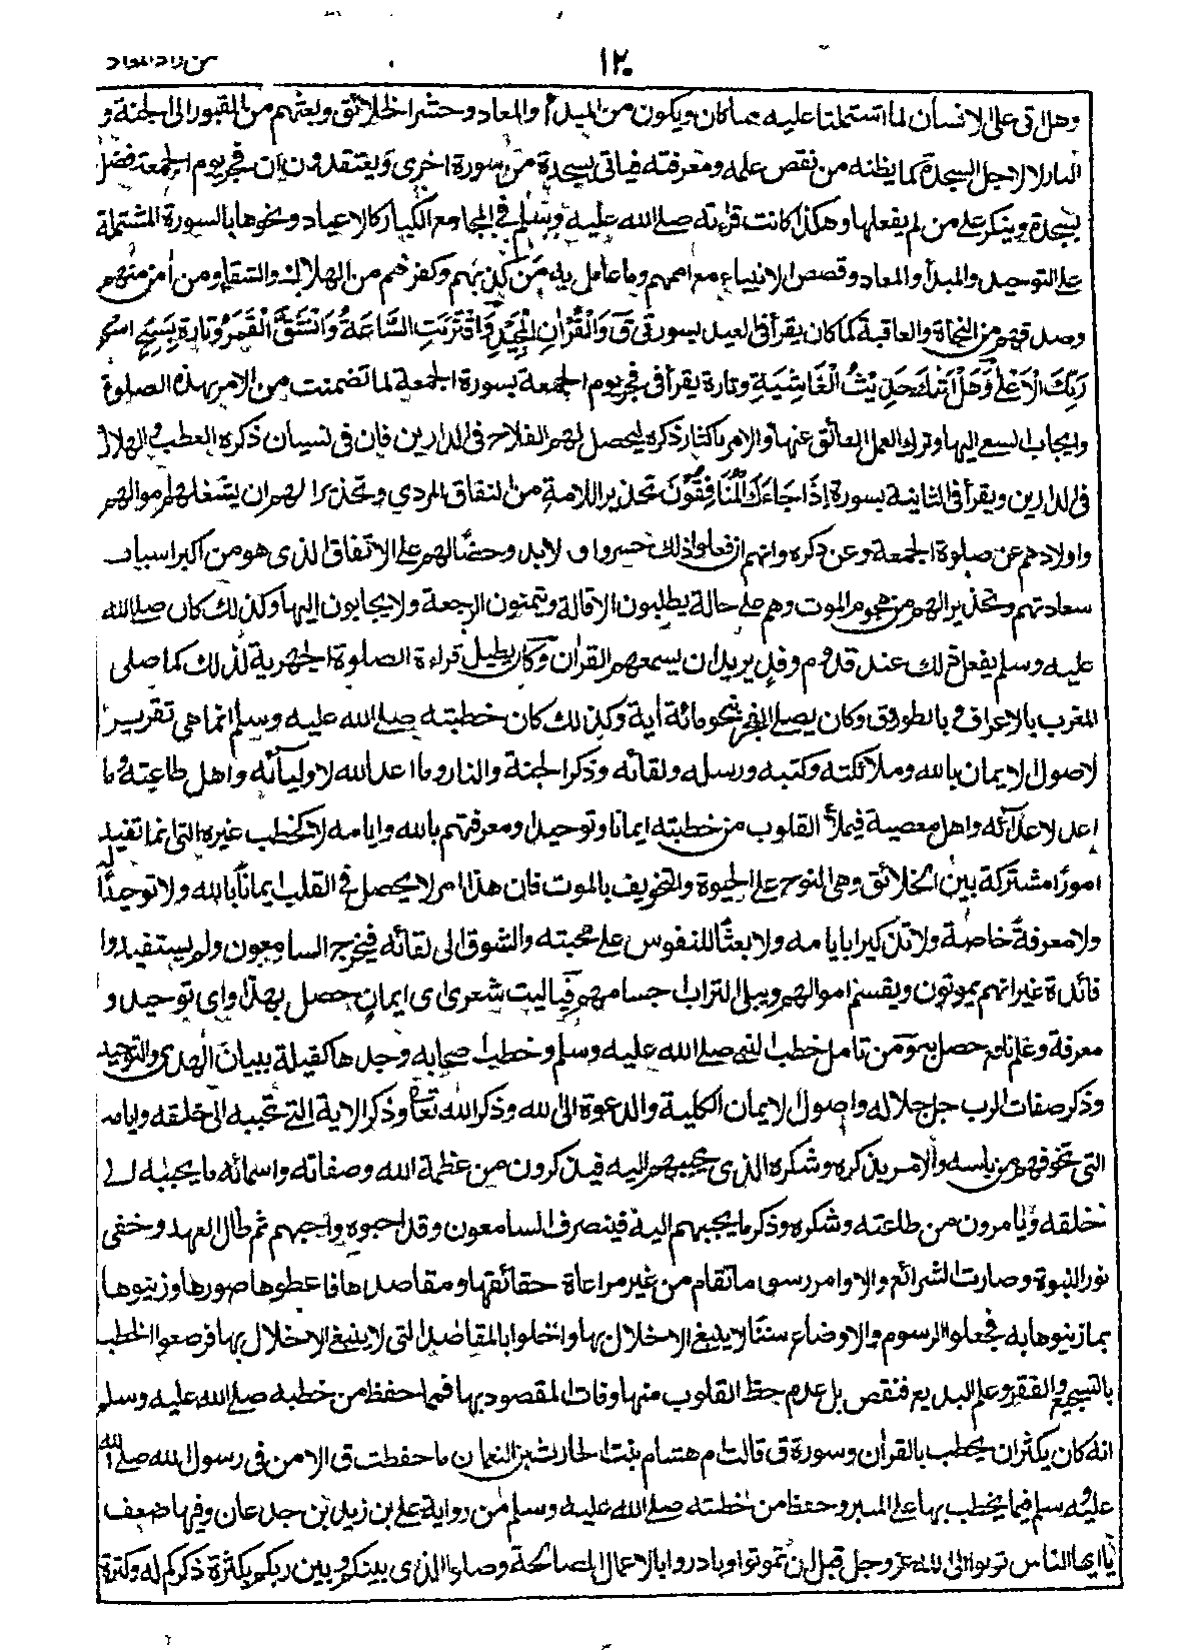 من زاد المعاد
١٢٠
وهل اتى على الانسان لما اشتملتا عليه مما كان ويكون من المبدأ والمعاد وحشر الخلائق وبعثهم من القبور الى الجنة و
النار لا لاجل السجدة كما يظنه من نقص علمه ومعرفته فياتى بسجدة من سورة اخرى ويعتقدون ان فجر يوم الجمعة فضل
بسجدة وينكر على من لم يفعلها وهكذا كانت قراءته صلى الله عليه وسلم في المجامع الكبار كالاعياد ونحوها بالسورة المشتملة
على التوحيد والمبدأ والمعاد وقصص الانبياء مع اممهم وما عامل به من كذبهم وكفر هم من الهلاك والشقاء ومن امن منهم
وصدقهم من النجاة والعاقبة كما كان يقرأ فى العيد بسورتى قٓ وَالْقُرْاٰنِ الْمَجِيْدِ وَاقْتَرَبَتِ السَّاعَةُ وَانْشَقَّ الْقَمَرُ وتارة بِسَبِّحِ اسْمَ
رَبِّكَ الْاَعْلٰى وَهَلْ اَتٰىكَ حَدِيْثُ الْغَاشِيَةِ وتارة يقرأ فى فجر يوم الجمعة بسورة الجمعة لما تضمنت من الامر بهذه الصلوة
وايجاب السعى اليها وترك العمل العائق عنها والامر باكثار ذكره ليحصل لهم الفلاح فى الدارين فان فى نسيان ذكره العطب والهلاك
فى الدارين ويقرأ فى الثانية بسورة اِذَا جَاءَكَ الْمُنَافِقُوْنَ تحذيرا للامة من النفاق المردي وتحذيرا لهم ان يشغلهم اموالهم
واولادهم عن صلوة الجمعة وعن ذكره وانهم ان فعلوا ذلك خسروا ولا بد وحضا لهم على الانفاق الذى هو من اكبر اسباب
سعادتهم وتحذيرا لهم من هجوم الموت وهم على حالة يطلبون الاقالة ويتمنون الرجعة ولا يجابون اليها وكذلك كان صلى الله
عليه وسلم يفعل ذلك عند قدوم وفد يريد ان يسمعهم القران وكان يطيل قراءة الصلوة الجهرية لذلك كما صلى
المغرب بالاعراف وبالطور وق وكان يصلى الفجر بنحو مائة اية وكذلك كان خطبته صلى الله عليه وسلم انما هى تقرير
لاصول الايمان بالله وملائكته وكتبه ورسله ولقائه وذكر الجنة والنار وما اعد الله لاوليائه واهل طاعته وما
اعد لاعدائه واهل معصيه فيملأ القلوب من خطبته ايمانا وتوحيدا ومعرفتهم بالله وايامه لا كخطب غيره التى انما تفيد
امورا مشتركة بين الخلائق وهى النوح على الحيوة والتخويف بالموت فان هذا امر لا يحصل فى القلب ايمانا بالله ولا توحيدا له
ولا معرفة خاصة ولا تذكيرا بايامه ولا بعثا للنفوس على محبته والشوق الى لقائه فيخرج السامعون ولم يستفيدوا
فائدة غير انهم يموتون ويقسم اموالهم ويبلى التراب اجسامهم فياليت شعرى اى ايمان حصل بهذا واى توحيد و
معرفة وعلم نافع حصل به ومن تامل خطب النبى صلى الله عليه وسلم وخطب اصحابه وجدها كفيلة ببيان الهدى والتوحيد
وذكر صفات الرب جل جلاله واصول الايمان الكلية والدعوة الى الله وذكر الله تعالى وذكر الاية التى تحببه الى خلقه وايامه
التى تخوفهم من باسه والامر بذكره وشكره الذى يحببهم اليه فيذكرون من عظمة الله وصفاته واسمائه ما يحببه الى
خلقه ويامرون من طاعته وشكره وذكر ما يحببهم اليه فينصرف السامعون وقد احبوه واحبهم ثم طال العهد وخفى
نور النبوة وصارت الشرائع والاوامر رسوما تقام من غير مراعاة حقائقها ومقاصدها فاعطوها صورها وزينوها
بما زينوها به فجعلوا الرسوم والاوضاع سننا لا ينبغى الاخلال بها واخلوا بالمقاصد التى لا ينبغى الاخلال بها فرصعوا الخطب
بالتسجيع والفقر وعلم البديع فنقص بل عدم حظ القلوب منها وفات المقصود بها فمما حفظ من خطبه صلى الله عليه وسلم
انه كان يكثر ان يخطب بالقران وسورة ق قالت ام هشام بنت الحارث بن النعمان ما حفظت ق الا من فى رسول الله صلى الله
عليه وسلم فيما يخطب بها على المنبر وحفظ من خطبته صلى الله عليه وسلم من رواية على بن زيد بن جدعان وفيها ضعف
يا ايها الناس توبوا الى الله عز وجل قبل ان تموتوا وبادروا بالاعمال الصالحة وصلوا الذى بينكم وبين ربكم بكثرة ذكركم له وكثرة